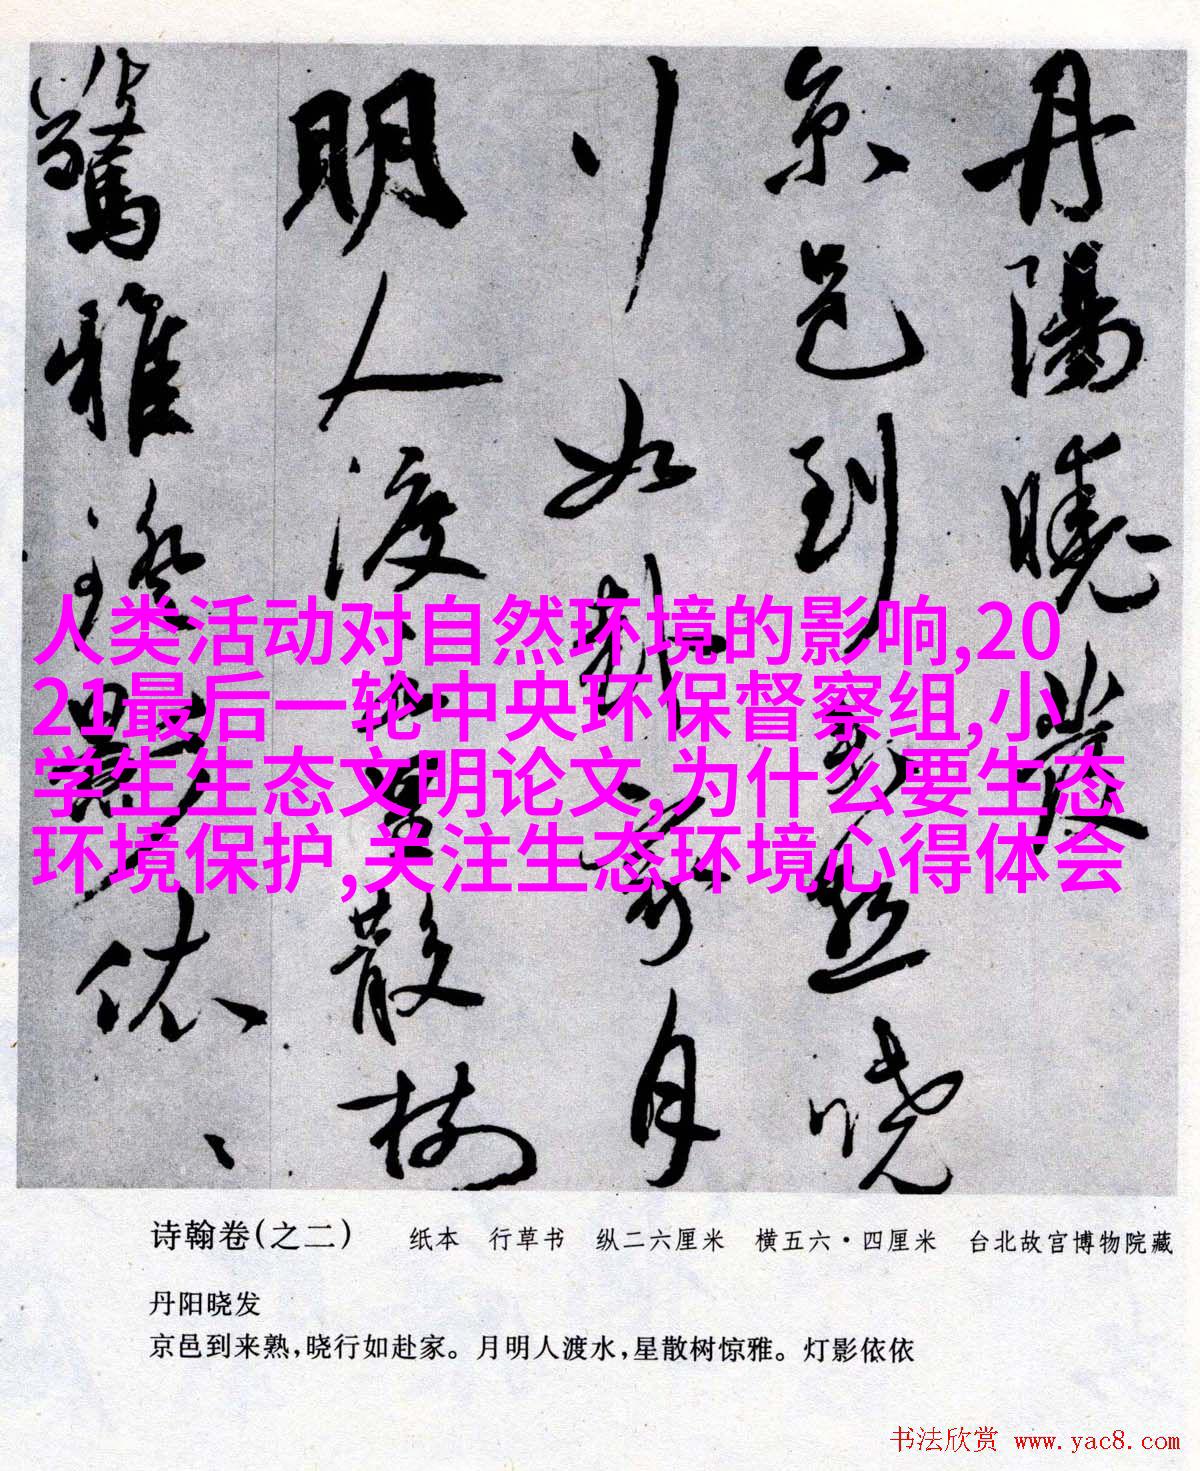 丹陽曉發
京邑到來熟曉
行如赴家月
明人渡水星散樹
驚雅燈影依
人类活动对自然环境的影响,20
21最后一轮中央环保督察组,小
学生生态文明论文,为什么要生态
环境保护,关注生态环境心得体会
诗翰卷(之二) 纸本 行草书 纵二六厘米 横五六·四厘米 台北故宫博物院藏
丹阳晓发
京邑到来熟,晓行如赴家。月明人渡水,星散树惊雅。灯影依依
书法欣赏 www.yac8.com